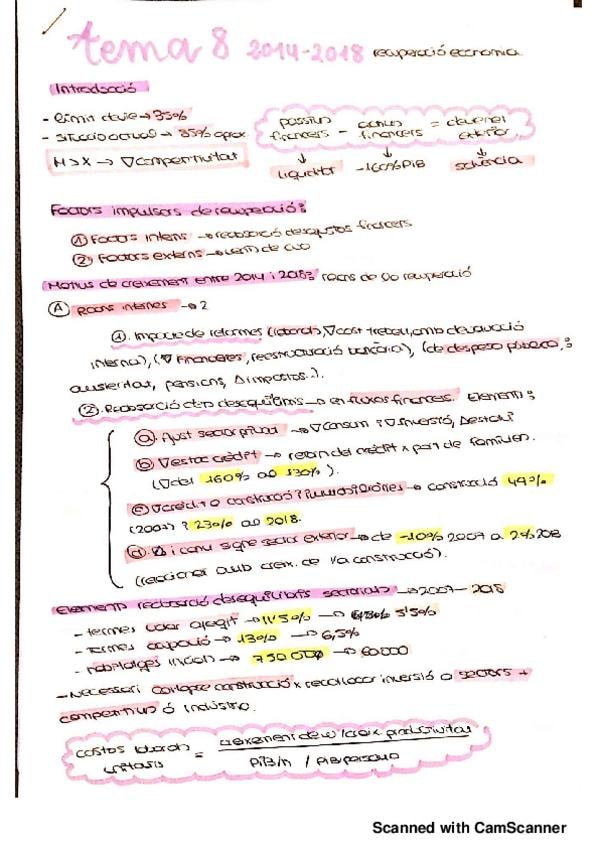 tema 8 2014-2018 recuperació economia
Introducció
- límit deute → 35%
- Situació actual → 85% aprox.
M > X → ∇ competitivitat
passius financers - actius financers = deute net exterior
liquiditat -160% PIB solvència
Factors impulsors de recuperació:
① Factors interns → reabsorció desequilibris financers
② Factors externs → vent de cua
Motius de creixement entre 2014 i 2018: raons de la recuperació
Ⓐ Raons internes → 2
①. Impacte de reformes (laborals, ∇ cost treball, amb devaluació
interna), (∇ Financeres, reestructuració bancària), (de despesa pública,
austeritat, pensions, Δ impostos..).
②. Reabsorció dels desequilibris → en fluxos financers. Elements:
ⓐ Ajust sector privat → ∇ consum i ∇ inversió, Δ estalvi
ⓑ ∇ estoc crèdit → retorn del crèdit x part de famílies.
(∇ del 160% al 130%).
ⓒ ∇ crèdit a construcció i → construcció 49%
(2007) i 23% al 2018.
ⓓ Δ i canvi signe sector exterior → de -10% 2007 a 2% 2018
(reaccionar amb creix. de la construcció).
Elements reabsorció desequilibris sectorials → 2007 - 2018
- termes valor afegit → 11'5% → 5'50%
- Termes ocupació → 13% → 6,5%
- habitatges iniciats → 750.000 → 80000
- Necessari col·lapse construcció x recol·locar inversió a sectors +
competitius o indústria.
costos laborals unitaris = creixement de w / creix productivitat
PIB/n / PIB persona
Scanned with CamScanner